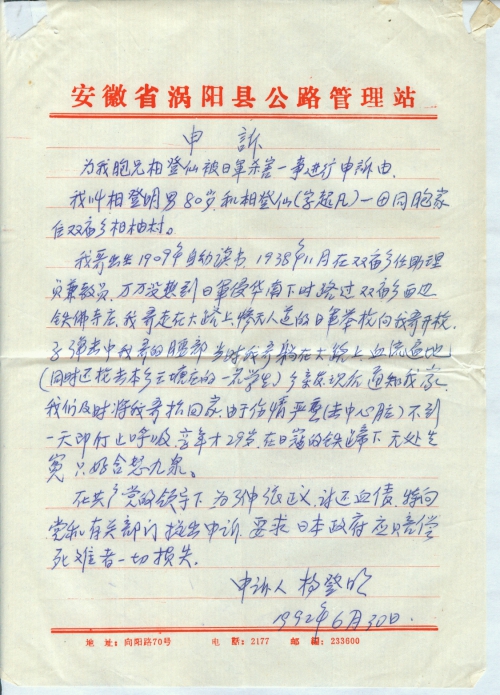 安徽省涡阳县公路管理站
申訴
为我胞兄相登仙被日軍杀害一事进行申訴由.
我叫相登明男80岁,和相登仙(字起凡)一田同胞家
住双庙乡相柚村。
我哥出生1909年自幼读书1938年11月在双庙乡任助理
员兼教员,万万没想到日軍侵华南下时路过双庙乡西边
铁佛寺庄,我哥走在大路上惨无人道的日軍举枪向我哥开枪,
子弹击中我哥的腹部当时我哥躺在大路上血流遍地
(同时还枪击本乡王塘庄的一名学生)乡亲发现后通知我家,
我们及时将我哥抬回家.由于伤情严重(击中心脏)不到
一天即停止呼吸,享年才29岁,在日寇的铁蹄下无处生
冤只好含怒九泉。
在共产党的领导下为了伸张正义,讨还血债,特向
党和有关部门提出申訴,要求日本政府应赔偿
死难者一切损失.
申訴人 相登明
1992年6月30日.
地 址:向阳路70号 电 話:2177 邮 編:233600